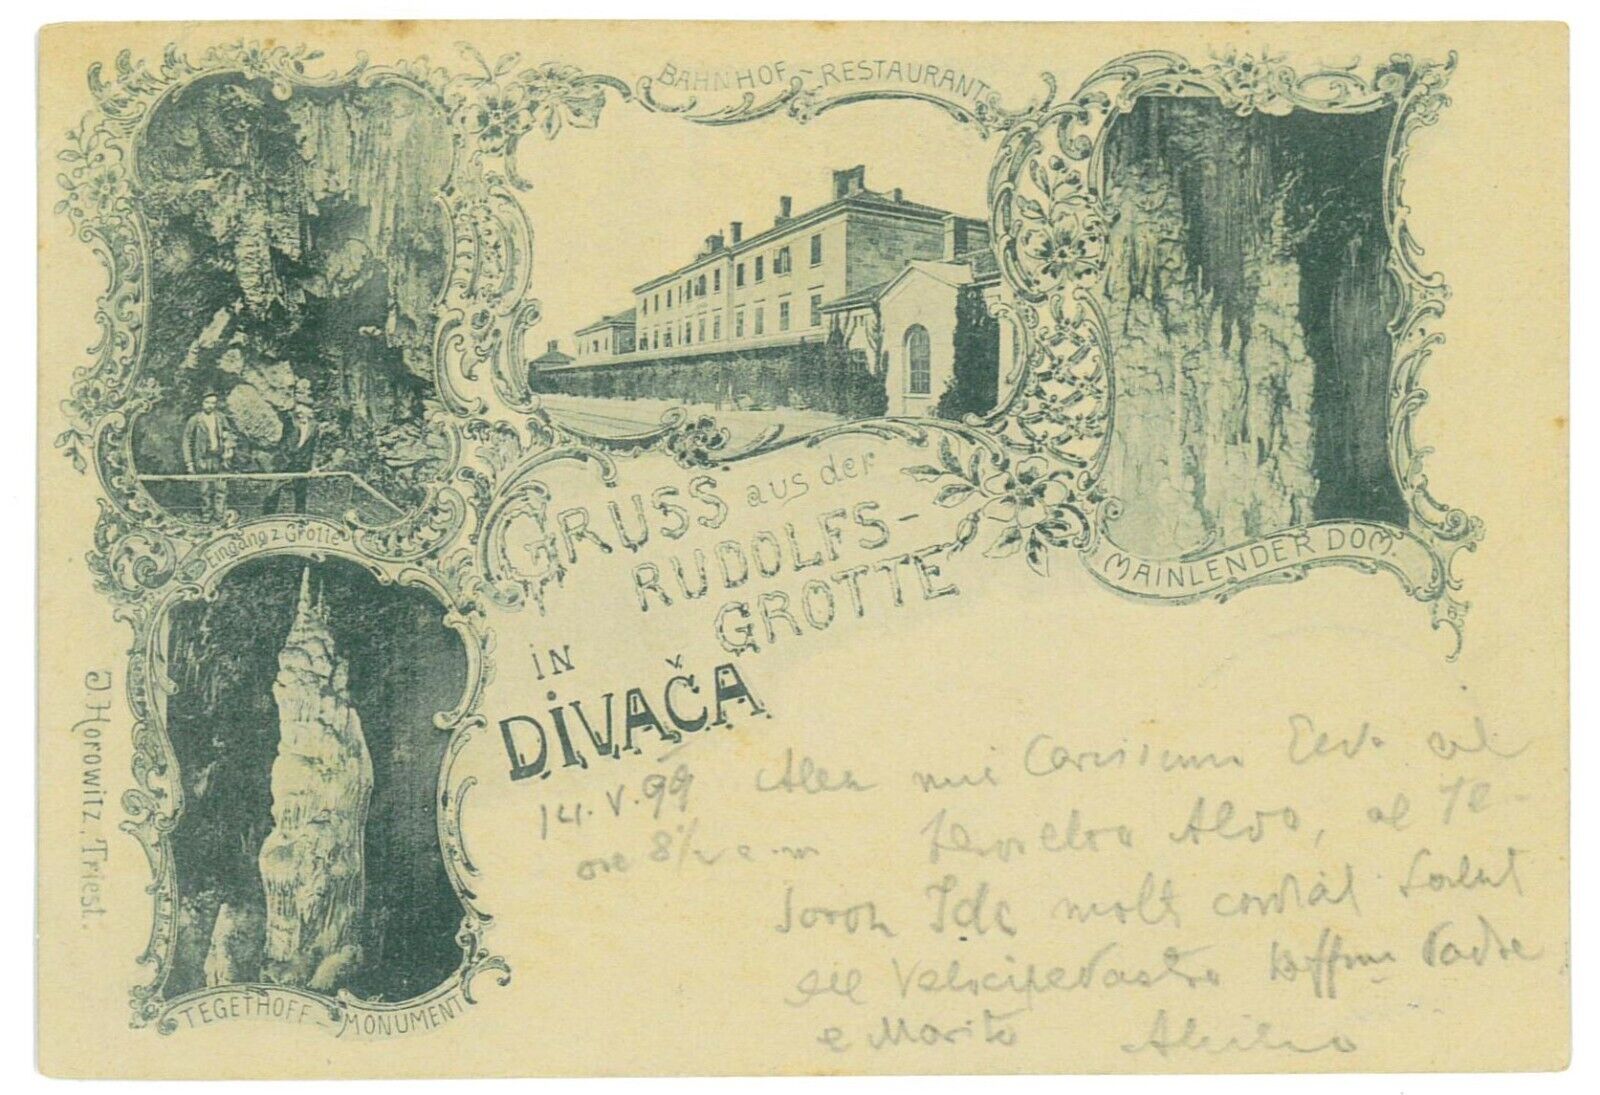 BAHNHOF - RESTAURANT
Eingang z Grotte
MAINLENDER DOM.
GRUSS aus der
RUDOLFS-
GROTTE
IN
DIVAČA
TEGETHOFF - MONUMENT
J. Horowitz, Triest.
14. V. 99
ore 8 1/2 a.m
Carissimi al
al Te-
soron Ide molti cordial Salut
Padre
e Marito